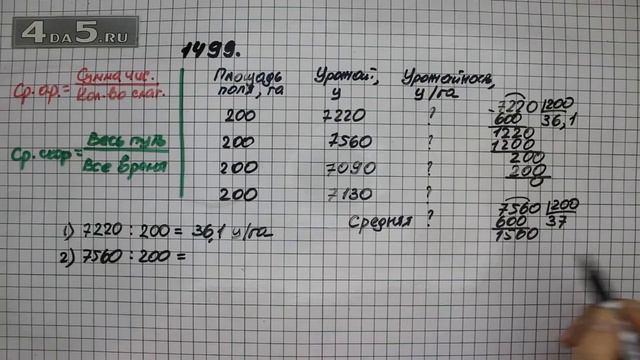 4DA5.RU
1499.
Ср. ар. = Сумма чис. / Кол-во слаг.
Ср. скор = Весь путь / Все время
Площадь поля, га | Урожай, ц | Урожайность, ц/га
200 7220 ?
200 7560 ?
200 7090 ?
200 7130 ?
Средняя ?
1) 7220 : 200 = 36,1 ц/га
2) 7560 : 200 =
- 7220 | 200
600 | 36,1
1220
1200
200
200
0
7560 | 200
600 | 37
1560